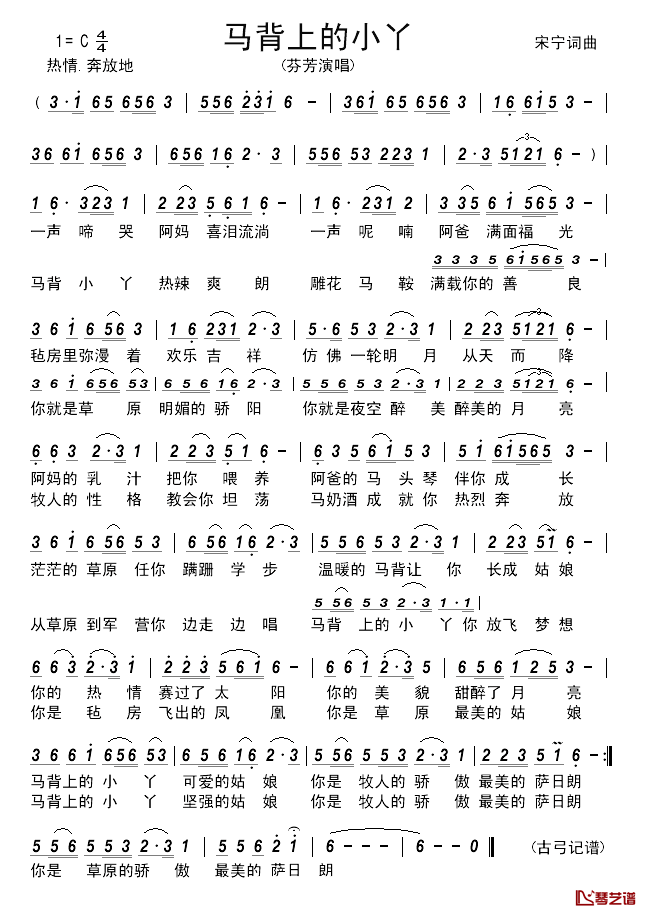 马背上的小丫
1= C 4/4
宋宁词曲
热情.奔放地
(芬芳演唱)
( 3·i 65 656 3 | 556 231 6 – | 361 656 3 – | 16 615 3 –
36 61 656 3 | 656 16 2·3 | 556 53 223 1 | 2·3 5121 6 – )
1 6· 323 1 | 2 23 5 61 6 – | 1 6· 231 2 | 3 35 6 1 565 3 – |
一声 啼 哭 阿妈 喜泪流淌 一声 呢 喃 阿爸 满面福 光
3 3 3 5 61565 3 – |
马背 小 丫 热辣 爽 朗 雕花 马 鞍 满载你的 善 良
3 6 i 6 56 3 | 1 6 231 2·3 | 5·6 53 2·3 1 | 2 23 5121 6 – |
毡房里弥漫 着 欢乐 吉 祥 仿 佛 一轮明 月 从天 而 降
3 6 i 656 53 | 656 16 2·3 | 556 53 2·3 1 | 2 23 5121 6 – |
你就是草 原 明媚的 骄 阳 你就是夜空 醉 美 醉美的 月 亮
6 63 2·3 1 | 2 23 5 1 6 – | 6 63 5 61 53 | 5 1 61565 3 – |
阿妈的 乳 汁 把你 喂 养 阿爸的 马 头 琴 伴你 成 长
牧人的 性 格 教会你 坦 荡 马奶酒 成 就 你 热烈 奔 放
3 6 i 6 56 5 3 | 6 56 16 2·3 | 556 53 2·3 1 | 2 23 51 6 – |
茫茫的 草原 任你 蹒跚 学 步 温暖的 马背让 你 长成 姑 娘
5 56 53 2·3 1·1 |
从草原 到军 营你 边走 边 唱 马背 上的 小 丫 你 放飞 梦 想
6 63 2·3 1 | 2 23 561 6 – | 6 63 2·3 5 | 656 16 2·3 – |
你的 热 情 赛过了 太 阳 你的 美 貌 甜醉了 月 亮
你是 毡 房 飞出的 凤 凰 你是 草 原 最美的 姑 娘
3 6 61 656 53 | 656 16 2·3 | 5 56 5 53 2·3 1 | 2 23 51 6 –:‖
马背上的 小 丫 可爱的姑 娘 你是 牧人的 骄 傲 最美的 萨日朗
马背上的 小 丫 坚强的姑 娘 你是 牧人的 骄 傲 最美的 萨日朗
5 56 553 2·3 1 | 5 56 2 i | 6 – – – | 6 – – 0 ‖ (古弓记谱)
你是 草原的骄 傲 最美的 萨日 朗
琴艺谱